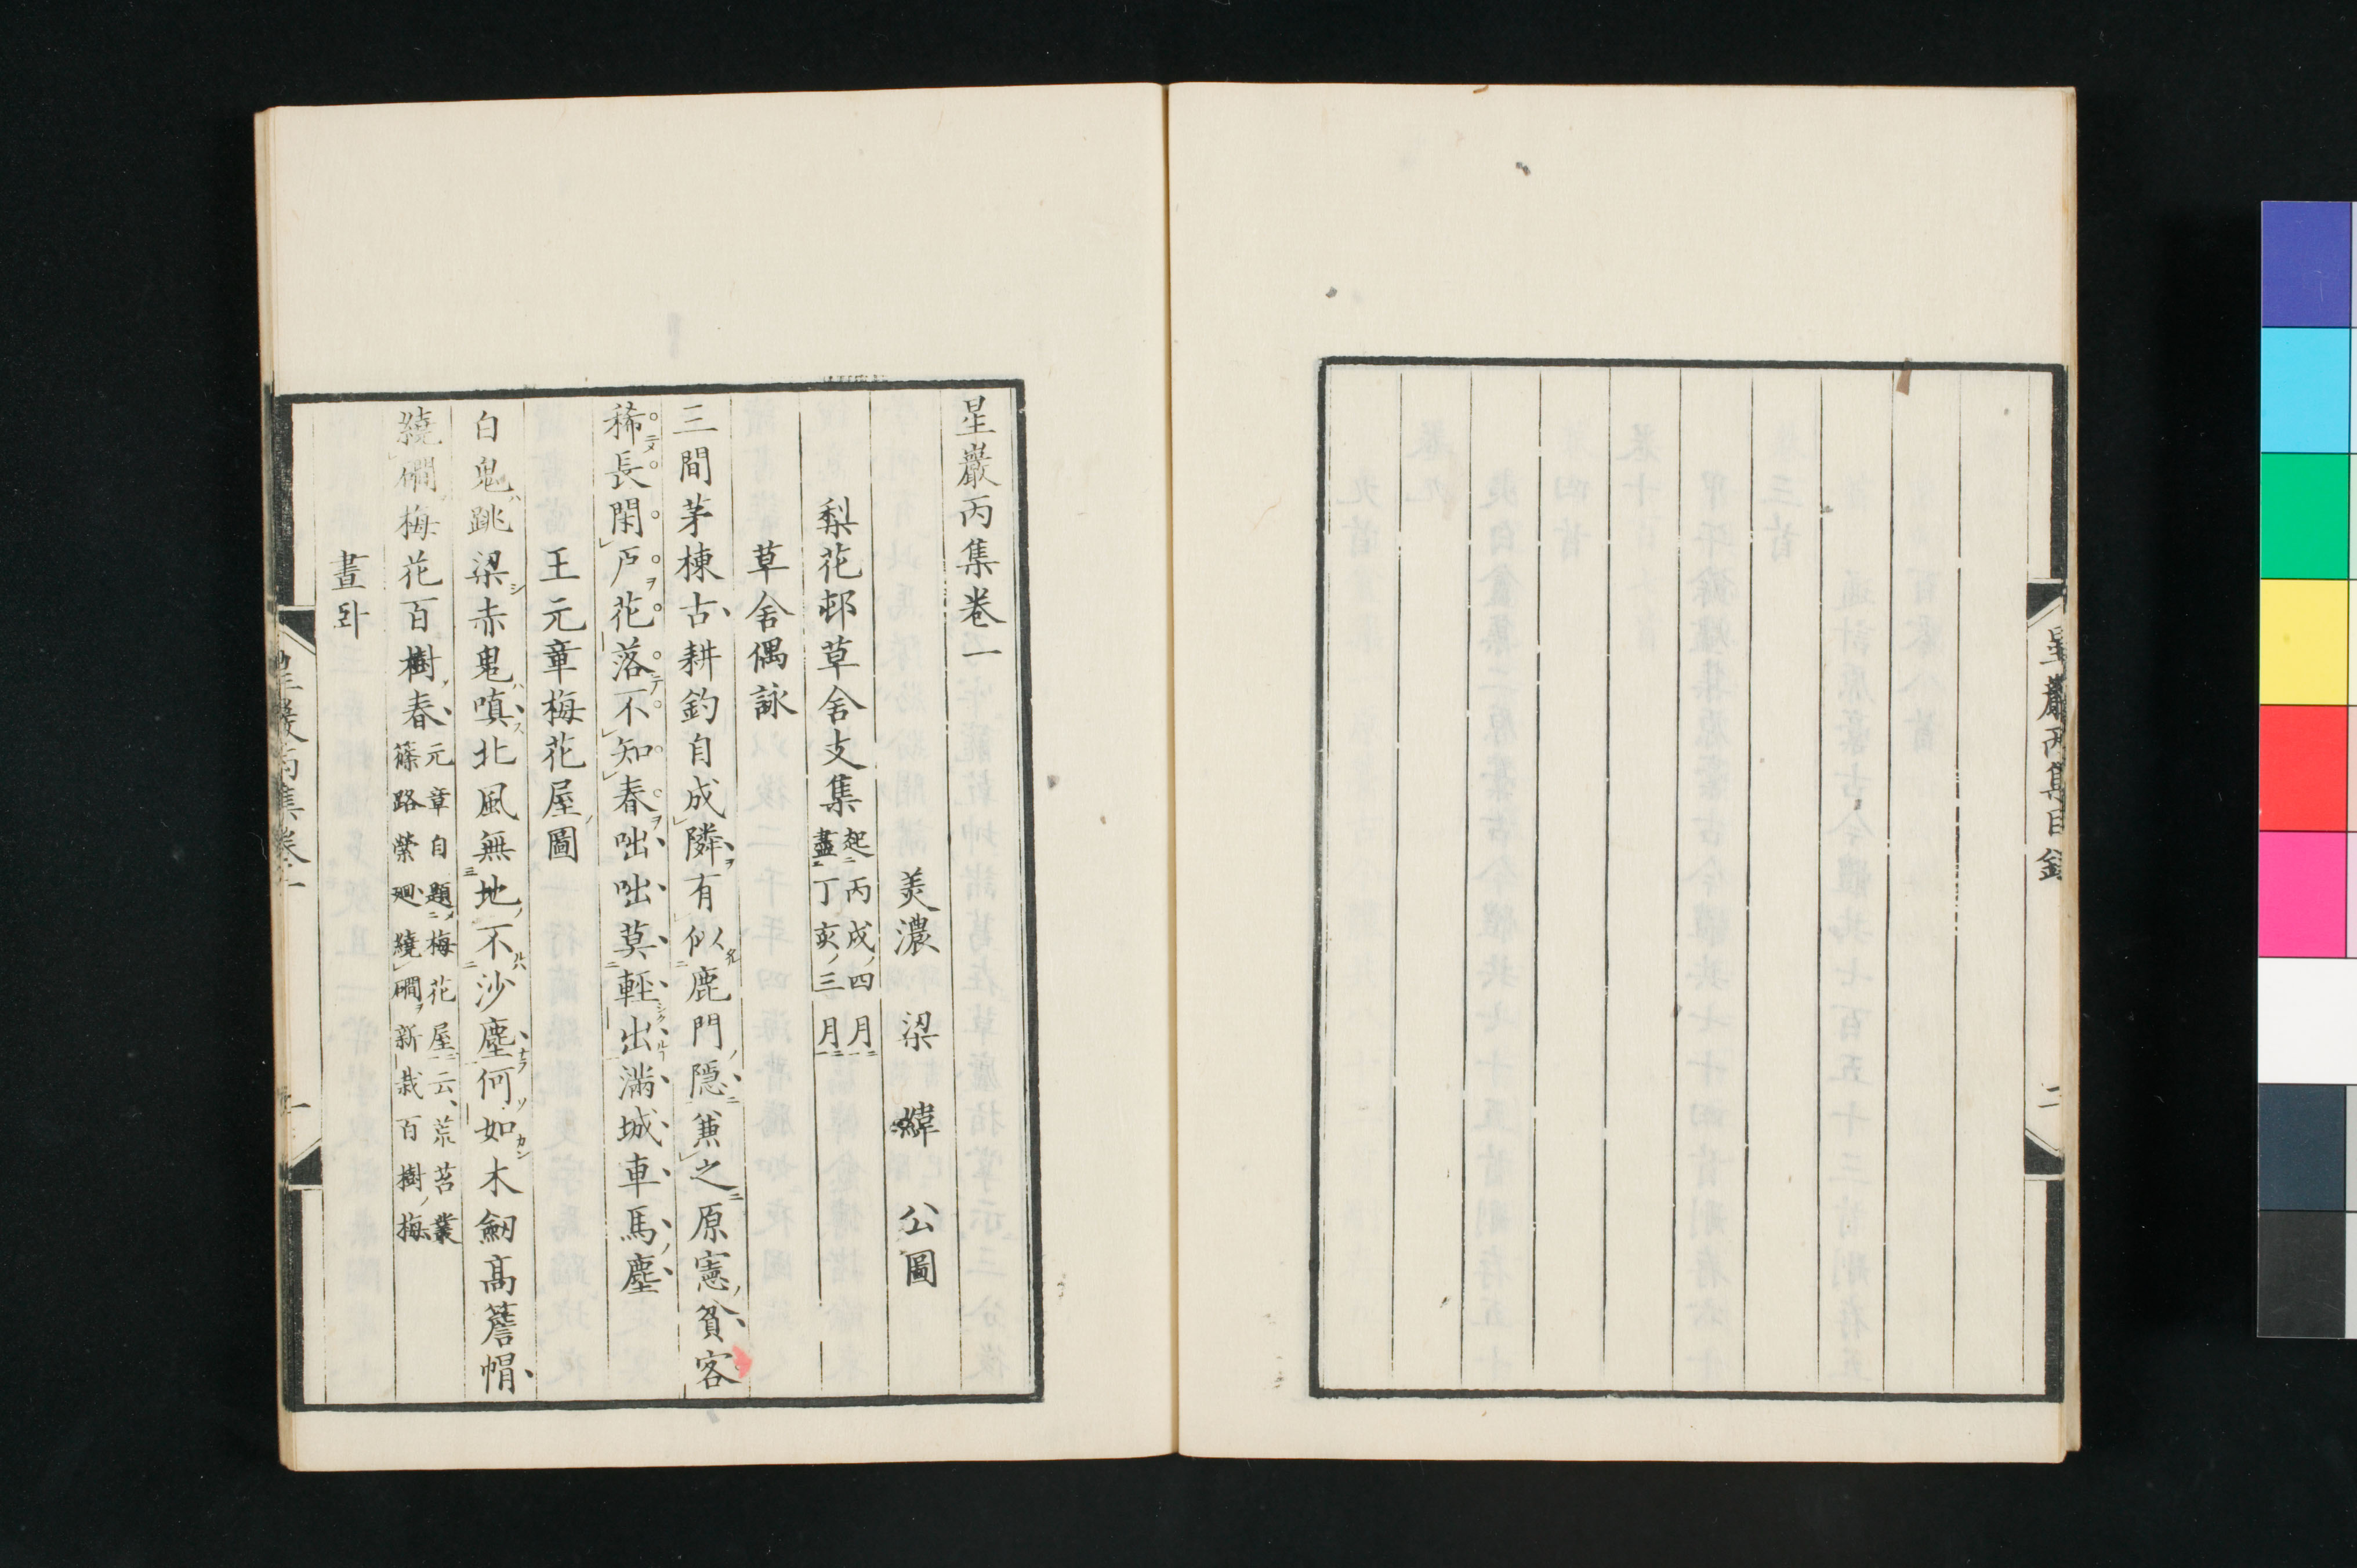 星巖丙集目錄
二
星巖丙集卷一
美濃 梁 緯 公圖
梨花邨草舍支集 起丙戌四月
盡丁亥三月
草舍偶詠
三間茅棟古耕釣自成隣有似鹿門隱兼之原憲貧客
稀長閑戶花落不知春咄咄莫輕出滿城車馬塵
王元章梅花屋圖
白鬼跳梁赤鬼嗔北風無地不沙塵何如木劒高簷帽
繞磵梅花百樹春 元章自題梅花屋云荒苔叢
篠路縈廻繞磵新栽百樹梅
晝臥
星巖丙集卷一
一